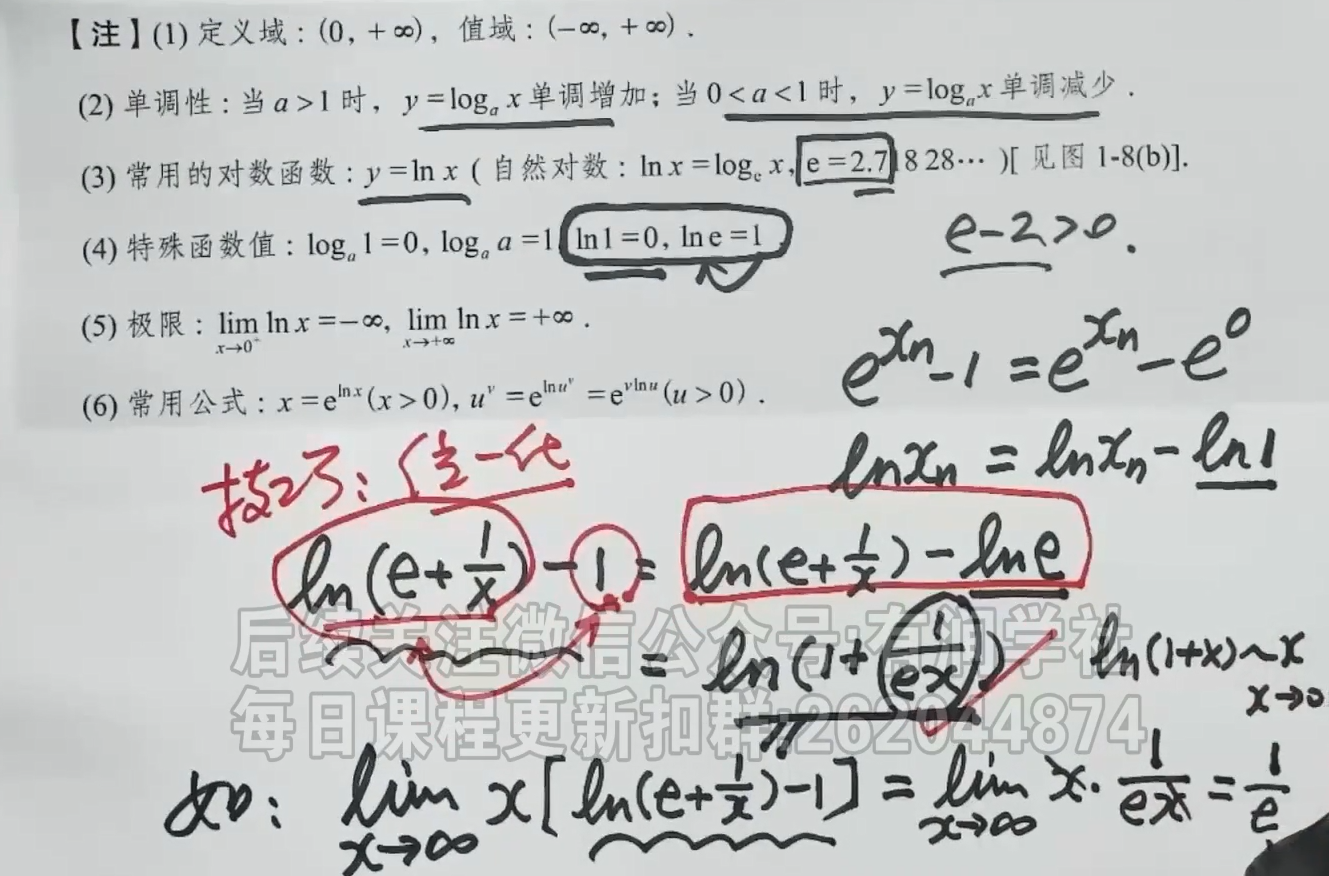 【注】(1) 定义域：(0, +∞)，值域：(-∞, +∞).
(2) 单调性：当 a>1 时，y=logₐ x 单调增加；当 0<a<1 时，y=logₐ x 单调减少.
(3) 常用的对数函数：y=ln x (自然对数：ln x=logₑ x, e=2.71828…)[见图 1-8(b)].
(4) 特殊函数值：logₐ 1=0, logₐ a=1, ln1=0, ln e=1
e-2>0.
(5) 极限：lim_{x→0⁺} ln x=-∞, lim_{x→+∞} ln x=+∞.
e^{xₙ}-1=e^{xₙ}-e^0
(6) 常用公式：x=e^{ln x}(x>0), u^v=e^{ln u^v}=e^{v ln u}(u>0).
lnxₙ=lnxₙ-ln1
技巧：统一化
ln(e+1/x)-1=ln(e+1/x)-lne
=ln(1+1/ex) ln(1+x)~x x→0
后续关注微信公众号:有润学社
每日课程更新扣群:262044874
如：lim_{x→∞} x[ln(e+1/x)-1]=lim_{x→∞} x·1/ex=1/e